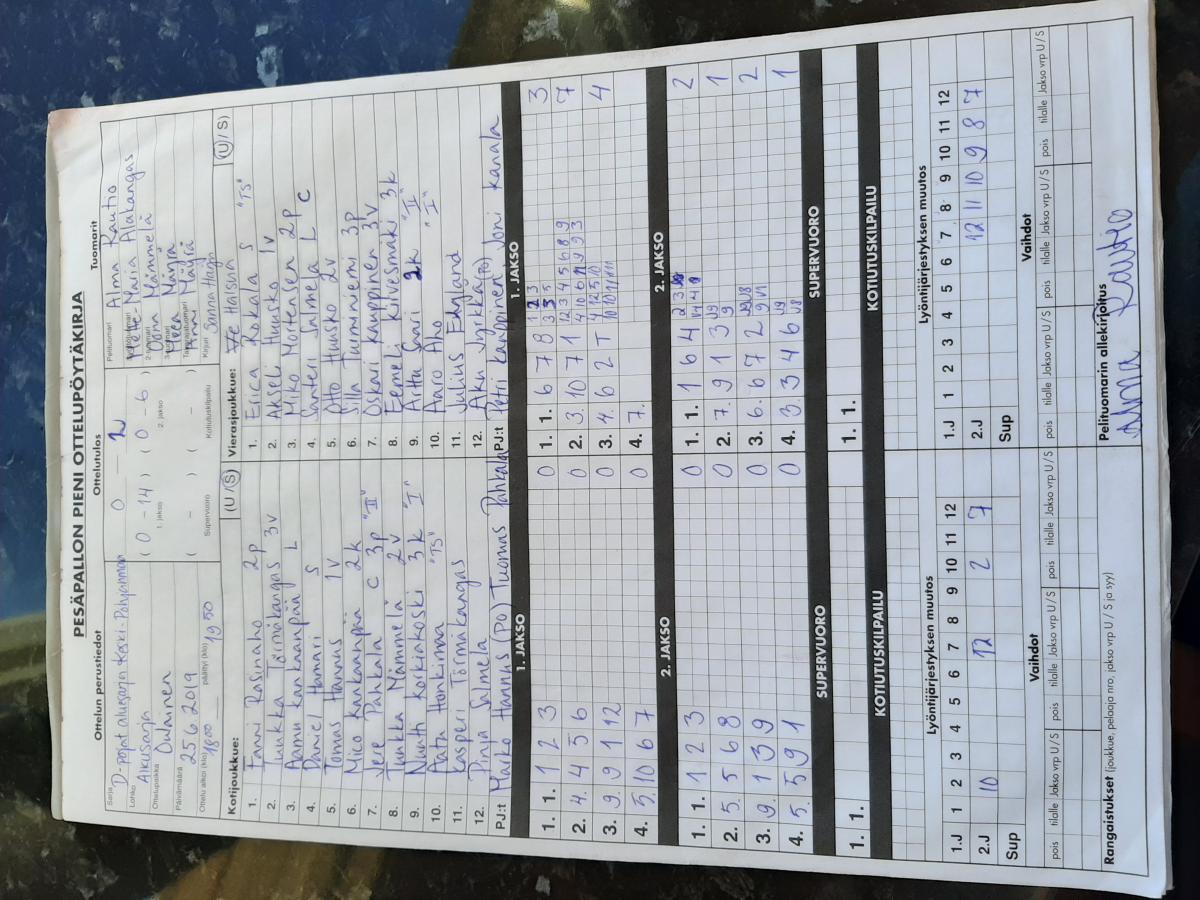 PESÄPALLON PIENI OTTELUPÖYTÄKIRJA
Ottelun perustiedot
Sarja D-pojat aluesarja Keski-Pohjanmaa
Lohko Alkusarja
Ottelupaikka Oulainen
Päivämäärä 25.6.2019
Ottelu alkoi (klo) 1800 päättyi (klo) 1950
Ottelutulos
0 – 2
(0 – 14) (0 – 6)
1. jakso 2. jakso
( – ) ( – )
Supervuoro Kotiutuskilpailu
Tuomarit
Pelituomari Alma Rautio
Maria Alakangas
2-tuomari Mämmelä
3-tuomari
Takarajatuomari
Kirjuri Sanna Harju
Kotijoukkue: (U/S)
1. Fanni Rasinaho 2p
2. Tuukka Törmäkangas 3v
3. Aamu Kankaanpää L
4. Daniel Hamari S
5. Tomas Hannus 1v
6. Mico Kankaanpää 2k
7. Jere Pahkala C 3p "II"
8. Tuukka Mämmelä 2v
9. Nuutti Korkiakoski 3k "I"
10. Aatu Honkimaa "TS"
11. Kasperi Törmäkangas
12. Pinja Salmela
PJ:t Marko Hannus (PO) Tuomas Pahkala
Vierasjoukkue: Haisura (U/S)
1. Erica Kokala S "TS"
2. Akseli Huusko 1v
3. Miko Mortensen 2p
4. Santeri Salmela L C
5. Otto Huusko 2v
6. Silla Tuorniemi 3p
7. Oskari Kauppinen 3v
8. Eemeli Kirvesmäki 3k
9. Arttu Saari 2k "II"
10. Aaro Aho "I"
11. Julius Edgland
12. Aku Jyrkkä
PJ:t Petri Kauppinen Joni Kanala
1. JAKSO 1. JAKSO
1. 1. 1 2 3 0
2. 4. 4 5 6 0
3. 9. 9 1 12 0
4. 5. 10 6 7 0
1. 1. 6 7 8 3
2. 3. 10 7 1 7
3. 4. 6 2 T 4
4. 7.
2. JAKSO 2. JAKSO
1. 1. 1 2 3 0
2. 5. 5 6 8 0
3. 9. 1 3 9 0
4. 5. 5 9 1 0
1. 1. 1 6 4 2
2. 7. 9 1 3 1
3. 6. 6 7 2 2
4. 3. 3 4 6 1
SUPERVUORO SUPERVUORO
1. 1. 1. 1.
KOTIUTUSKILPAILU KOTIUTUSKILPAILU
Lyöntijärjestyksen muutos Lyöntijärjestyksen muutos
1.J 1 2 3 4 5 6 7 8 9 10 11 12
2.J 10 12 2 7
Sup
1.J 1 2 3 4 5 6 7 8 9 10 11 12
2.J 12 11 10 9 8 7
Sup
Vaihdot Vaihdot
pois tilalle Jakso vrp U/S pois tilalle Jakso vrp U/S pois tilalle Jakso vrp U/S
pois tilalle Jakso vrp U/S pois tilalle Jakso vrp U/S pois tilalle Jakso vrp U/S
Rangaistukset (joukkue, pelaaja nro, jakso vrp U / S ja syy)
Pelituomarin allekirjoitus
Alma Rautio